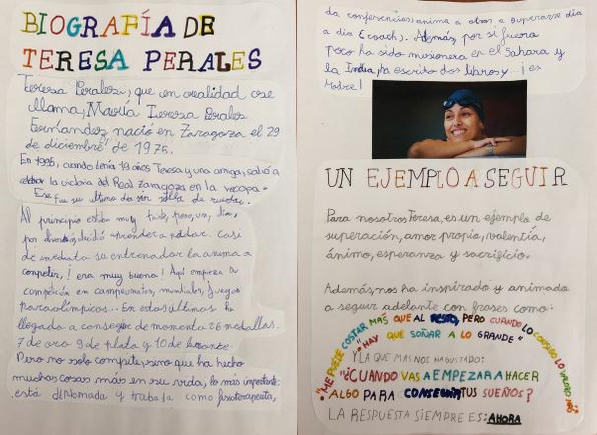 BIOGRAFÍA DE
TERESA PERALES
Teresa Perales, que en realidad se
llama, María Teresa Perales
Fernández, nació en Zaragoza el 29
de diciembre de 1975.
En 1995, cuando tenía 19 años Teresa y una amiga, salió a
celebrar la victoria del Real Zaragoza en la recopa.
Ese fue su último día sin silla de ruedas.
Al principio estaba muy triste, pero, un día,
por diversión, decidió aprender a nadar. Casi
de inmediato su entrenador la anima a
competir, ¡era muy buena! Aquí empieza a
competir en campeonatos, mundiales, juegos
paraolímpicos... En estos últimos ha
llegado a conseguir de momento 26 medallas.
7 de oro 9 de plata y 10 de bronce.
Pero no solo compite, sino que ha hecho
muchas cosas más en su vida, lo más importante:
está diplomada y trabaja como fisioterapeuta,
da conferencias, anima a otros a superarse día
a día (coach). Además por si fuera
poco ha sido misionera en el Sahara y
la India, ha escrito dos libros y... ¡es
madre!
UN EJEMPLO A SEGUIR
Para nosotros Teresa, es un ejemplo de
superación, amor propio, valentía,
ánimo, esperanza y sacrificio.
Además, nos ha inspirado y animado
a seguir adelante con frases como:
"ME PUEDE COSTAR MÁS QUE AL RESTO, PERO CUANDO LO CONSIGO LO VALORO MÁS"
"HAY QUE SOÑAR A LO GRANDE"
Y LA QUE MÁS NOS HA GUSTADO:
"¿CUANDO VAS A EMPEZAR A HACER
ALGO PARA CONSEGUIR TUS SUEÑOS?
LA RESPUESTA SIEMPRE ES: AHORA